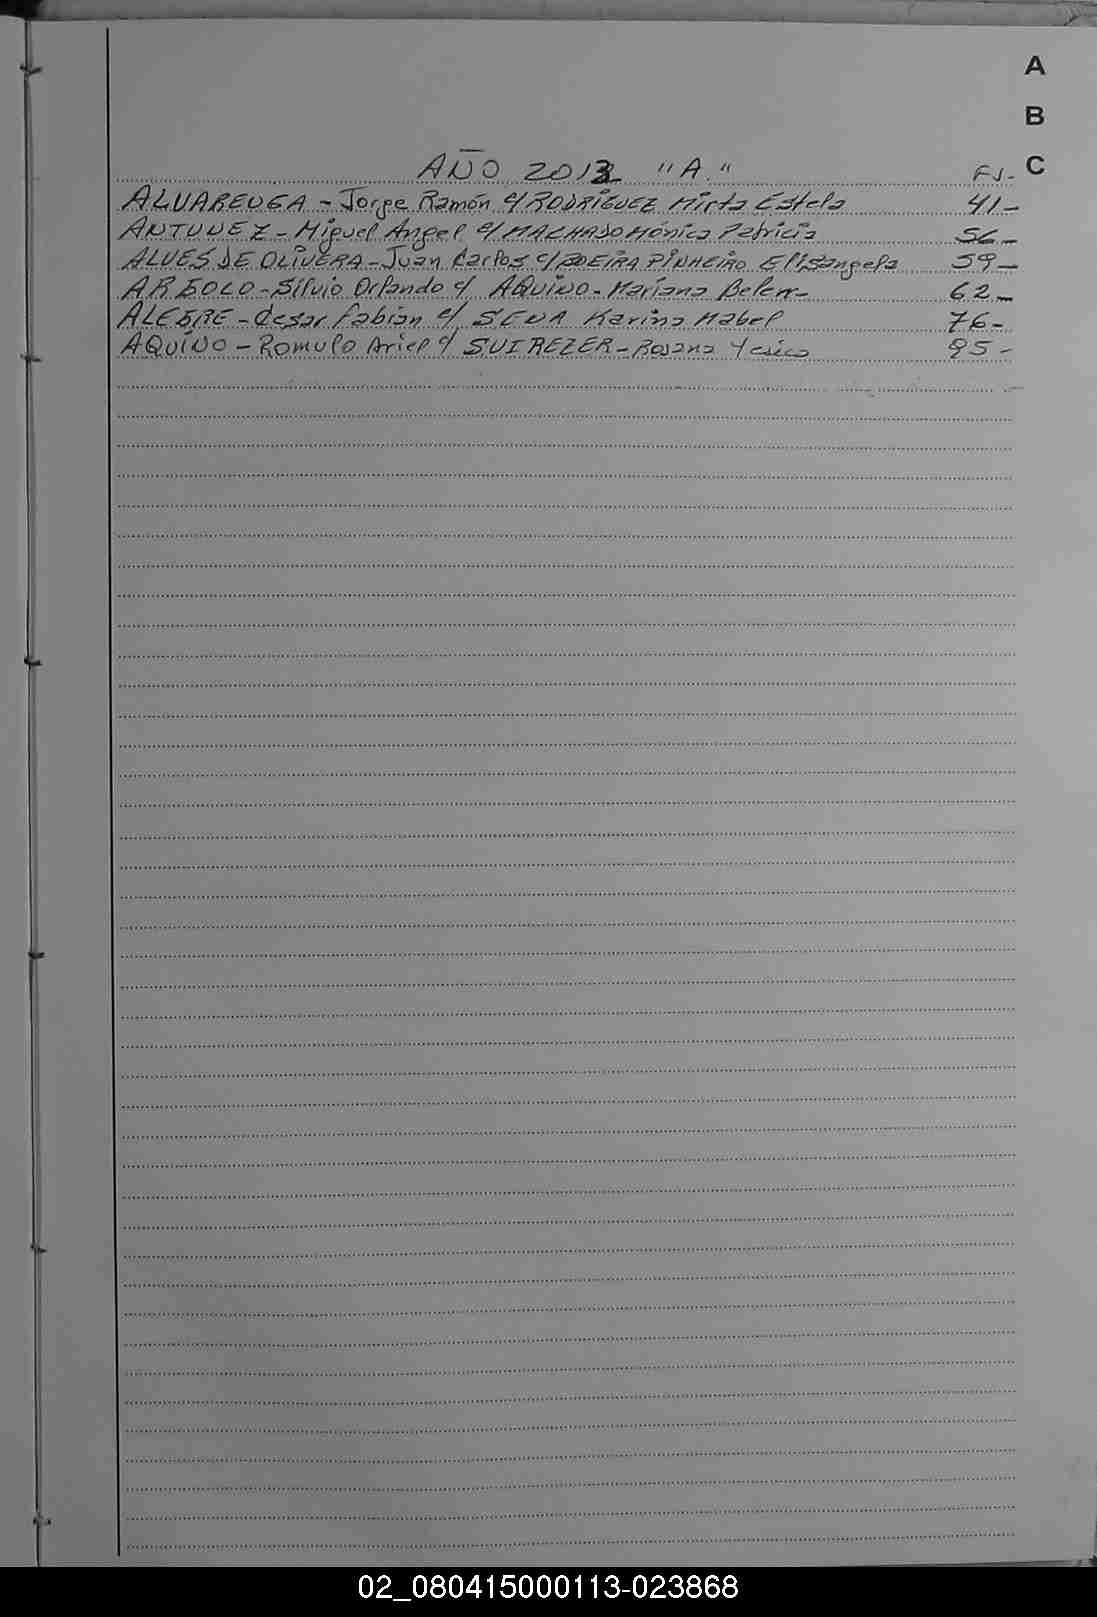 A
B
C
AÑO 2013 "A."
FJ-
ALVARENGA - Jorge Ramón c/ RODRIGUEZ Mirta Estela 41-
ANTUNEZ - Miguel Angel c/ MACHADO Mónica Patricia 56-
ALVES DE OLIVERA - Juan Carlos c/ PINHEIRO Elisangela 59-
ARGOLO - Silvio Orlando c/ AQUINO - Mariana Belen - 62-
ALEGRE - Cesar Fabian c/ SENA Karina Mabel 76-
AQUINO - Romulo Ariel c/ SUIREZER - Rosana Yesica 95-
02_080415000113-023868